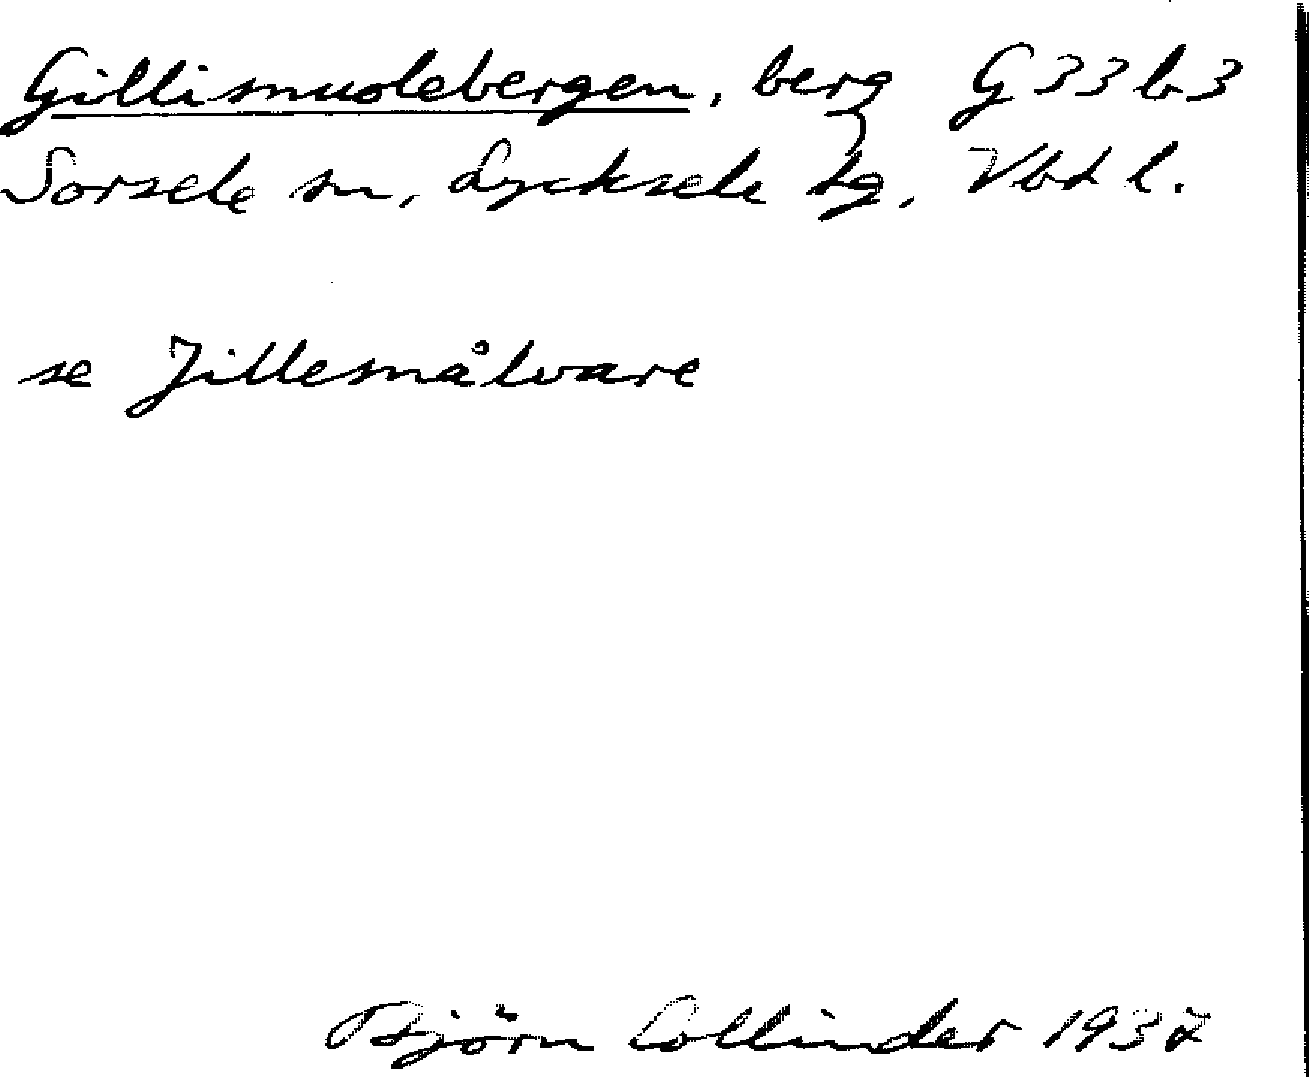 Gillismuolebergen, berg G33b3
Sorsele sn, Lycksele lg, Vbtl.
se Jillesmålvare
Björn Collinder 1937